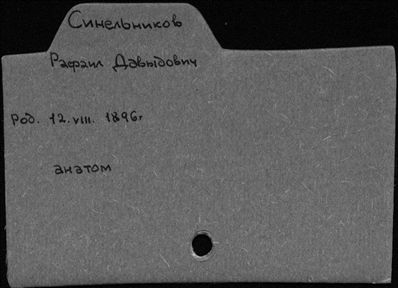 Синельников
Рафаил Давыдович
Род. 12.VIII. 1896г
анатом